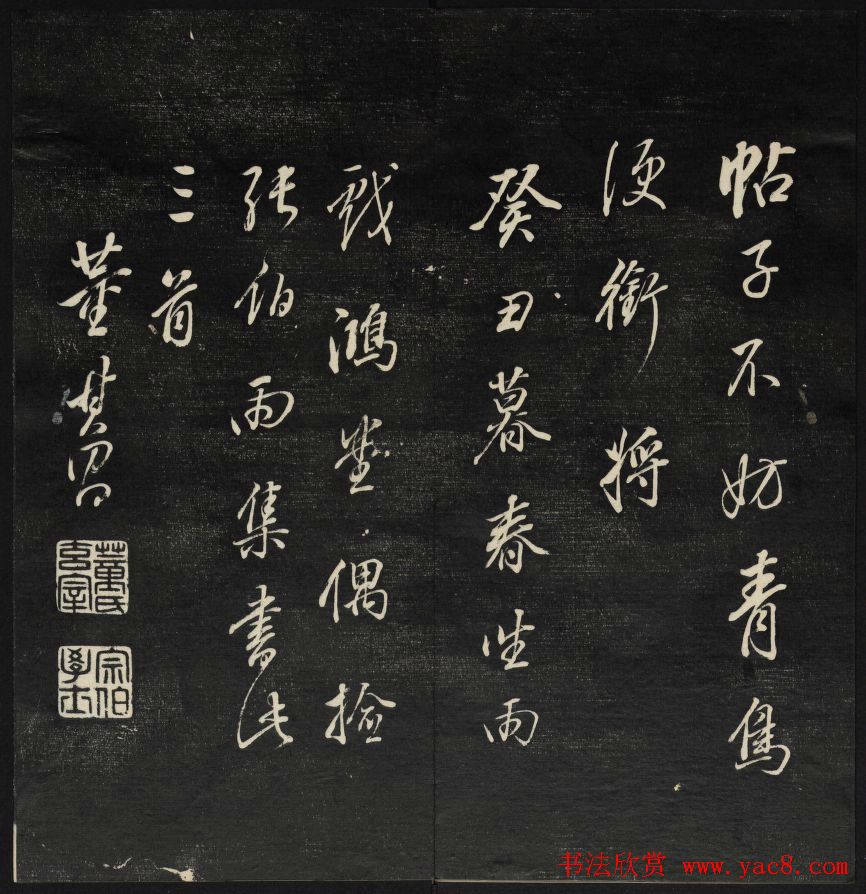 帖子不妨青鳥
便銜將
癸丑暮春坐雨
戲鴻堂偶撿
張伯雨集書此
三首
董其昌
董氏玄宰
宗伯學士
书法欣赏 www.yac8.com